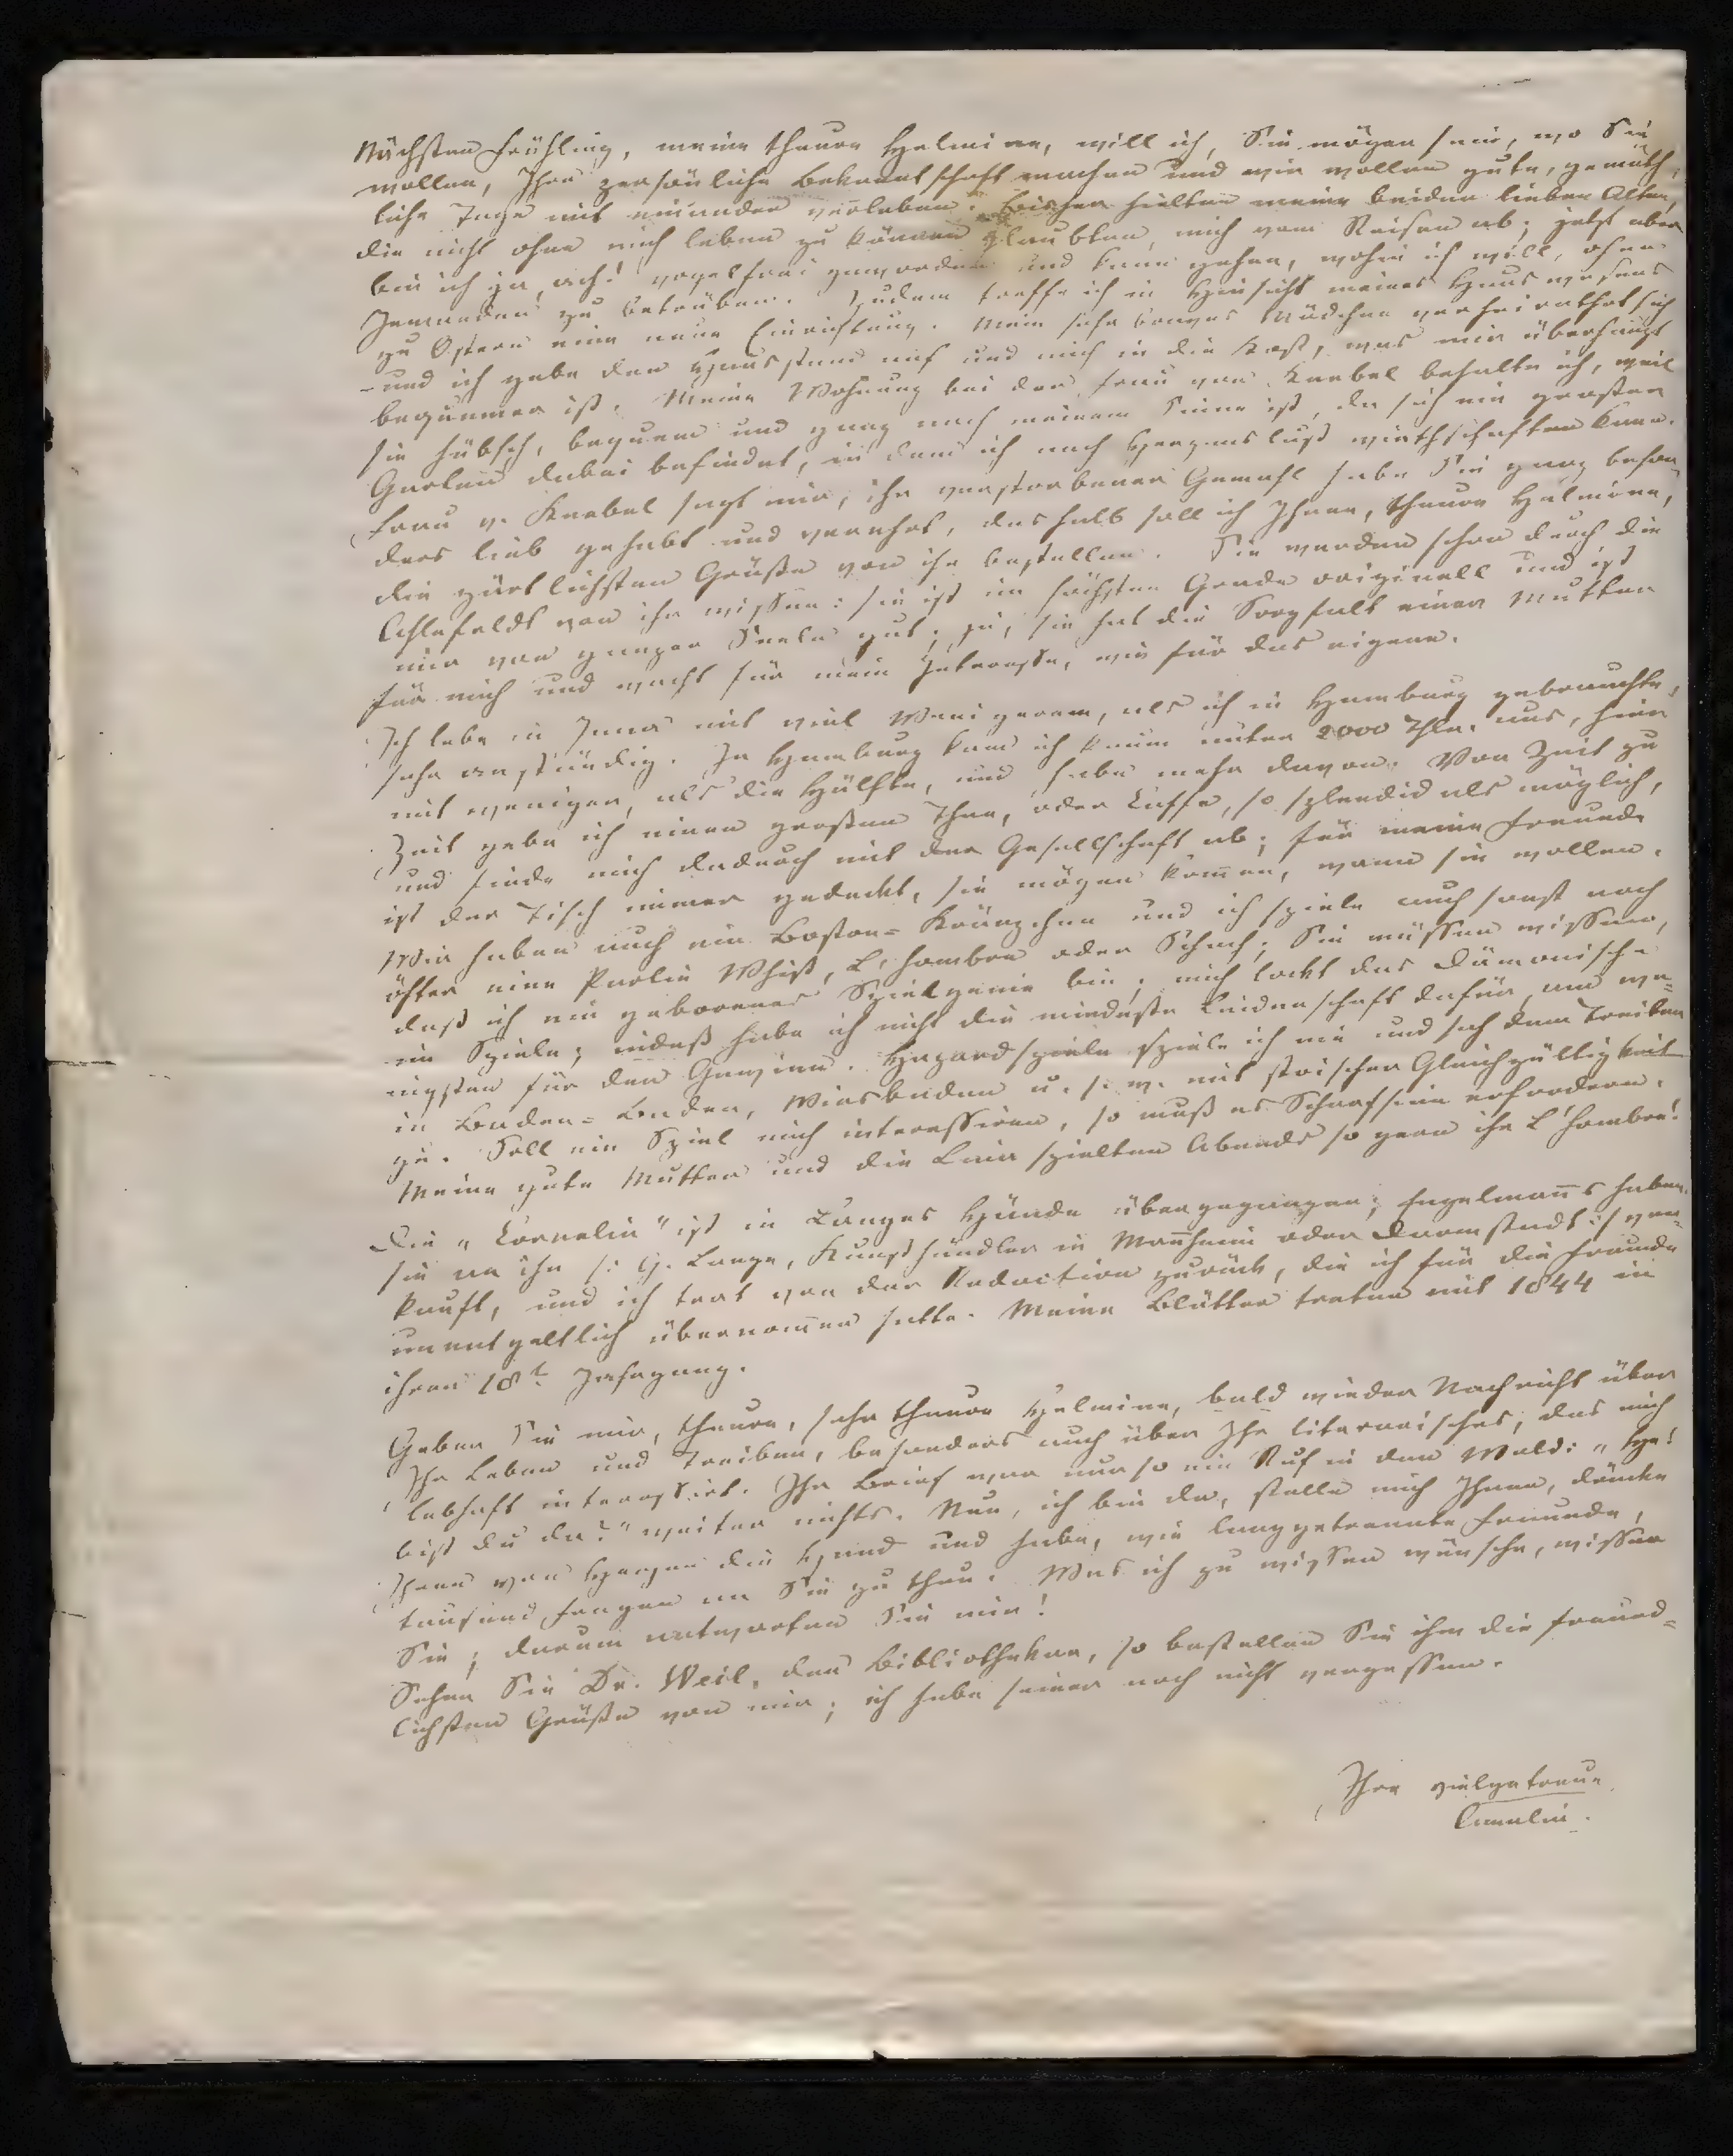 Nächsten Frühling, meine theure Helmine, will ich, Sie mögen sein, wo Sie
wollen, Ihre persönliche Bekanntschaft machen und wir wollen gute, gemüth¬
liche Tage mit einander verleben. Bisher hielten meine beiden lieben Alten,
die nicht ohne mich leben zu können glaubten, mich vom Reisen ab; jetzt aber
bin ich ja, ach! vogelfrei geworden und kann gehen, wohin ich will, ohne
Jemanden zu betrüben. Zudem treffe ich in Hinsicht meines Hauswesens
zu Ostern eine neue Einrichtung. Mein sehr braves Mädchen verheirathet sich
und ich gebe den Hausstand auf und mich in die Kost, was mir überhaupt
bequemer ist. Meine Wohnung bei der Frau von Knebel behalte ich, weil
sie hübsch, bequem und ganz nach meinem Sinne ist, da sich ein großer
Garten dabei befindet, in dem ich nach Herzenslust wirthschaften kann.
Frau v. Knebel sagt mir, ihr verstorbener Gemahl habe Sie ganz beson¬
ders lieb gehabt und verehrt, deshalb soll ich Ihnen, theure Helmine,
die zärtlichsten Grüße von ihr bestellen. Sie werden schon durch die
Ahlefeldt von ihr wissen: sie ist im höchsten Grade originell und ist
mir von ganzer Seele gut; ja, sie hat die Sorgfalt einer Mutter
für mich und wacht für mein Interesse, wie für das eigene.
Ich lebe in Jena mit viel Wenigerem, als ich in Hamburg gebrauchte,
sehr anständig. In Hamburg kam ich kaum unter 2000 Thlr. aus, hier
mit weniger, als die Hälfte, und habe mehr davon. Von Zeit zu
Zeit gebe ich einen großen Thee, oder Kaffe, so splendid als möglich,
und finde mich dadurch mit der Gesellschaft ab; für meine Freunde
ist der Tisch immer gedeckt, sie mögen kom̄en, wann sie wollen.
Wir haben auch ein Boston-Kränzchen und ich spiele auch sonst noch
öfter eine Partie Whist, L'hombre oder Schach; Sie müssen wissen,
daß ich ein geborenes Spielgenie bin; mich lockt das Dämonische
im Spiele; indeß habe ich nicht die mindeste Leidenschaft dafür, am we¬
nigsten für den Gewinn. Hazardspiele spiele ich nie und sah dem Treiben
in Baden-Baden, Wiesbaden u. s. w. mit stoischer Gleichgültigkeit
zu. Soll ein Spiel mich interessiren, so muß es Scharfsinn erfordern.
Meine gute Mutter und die spielten Abends so gern ihr L'hombre!
Die „Cornelia" ist in Langes Hände übergegangen; Engelman̄s haben
sie an ihn /: G. Lange, Kunsthändler in Man̄heim oder Darmstadt :/ ver¬
kauft, und ich trat von der Redaction zurück, die ich für die Freunde
unentgeltlich übernom̄en hatte. Meine Blätter treten mit 1844 in
ihren 18t. Jahrgang.
Geben Sie mir, theure, sehr theure Helmine, bald wieder Nachricht über
Ihr Leben und Treiben, besonders auch über Ihr literarisches, das mich
lebhaft interessirt. Ihr Brief war nur so ein Ruf in den Wald: „He!
bist du da?" weiter nichts. Nun, ich bin da, stelle mich Ihnen, drücke
Ihnen von Herzen die Hand und habe, wie langgetrennte Freunde,
tausend Fragen an Sie zu thun. Was ich zu wissen wünsche, wissen
Sie; darum antworten Sie mir!
Sehen Sie Dr. Weil, den Bibliothekar, so bestellen Sie ihm die freund¬
lichsten Grüße von mir; ich habe seiner noch nicht vergessen.
Ihre vielgetreue
Amalia.